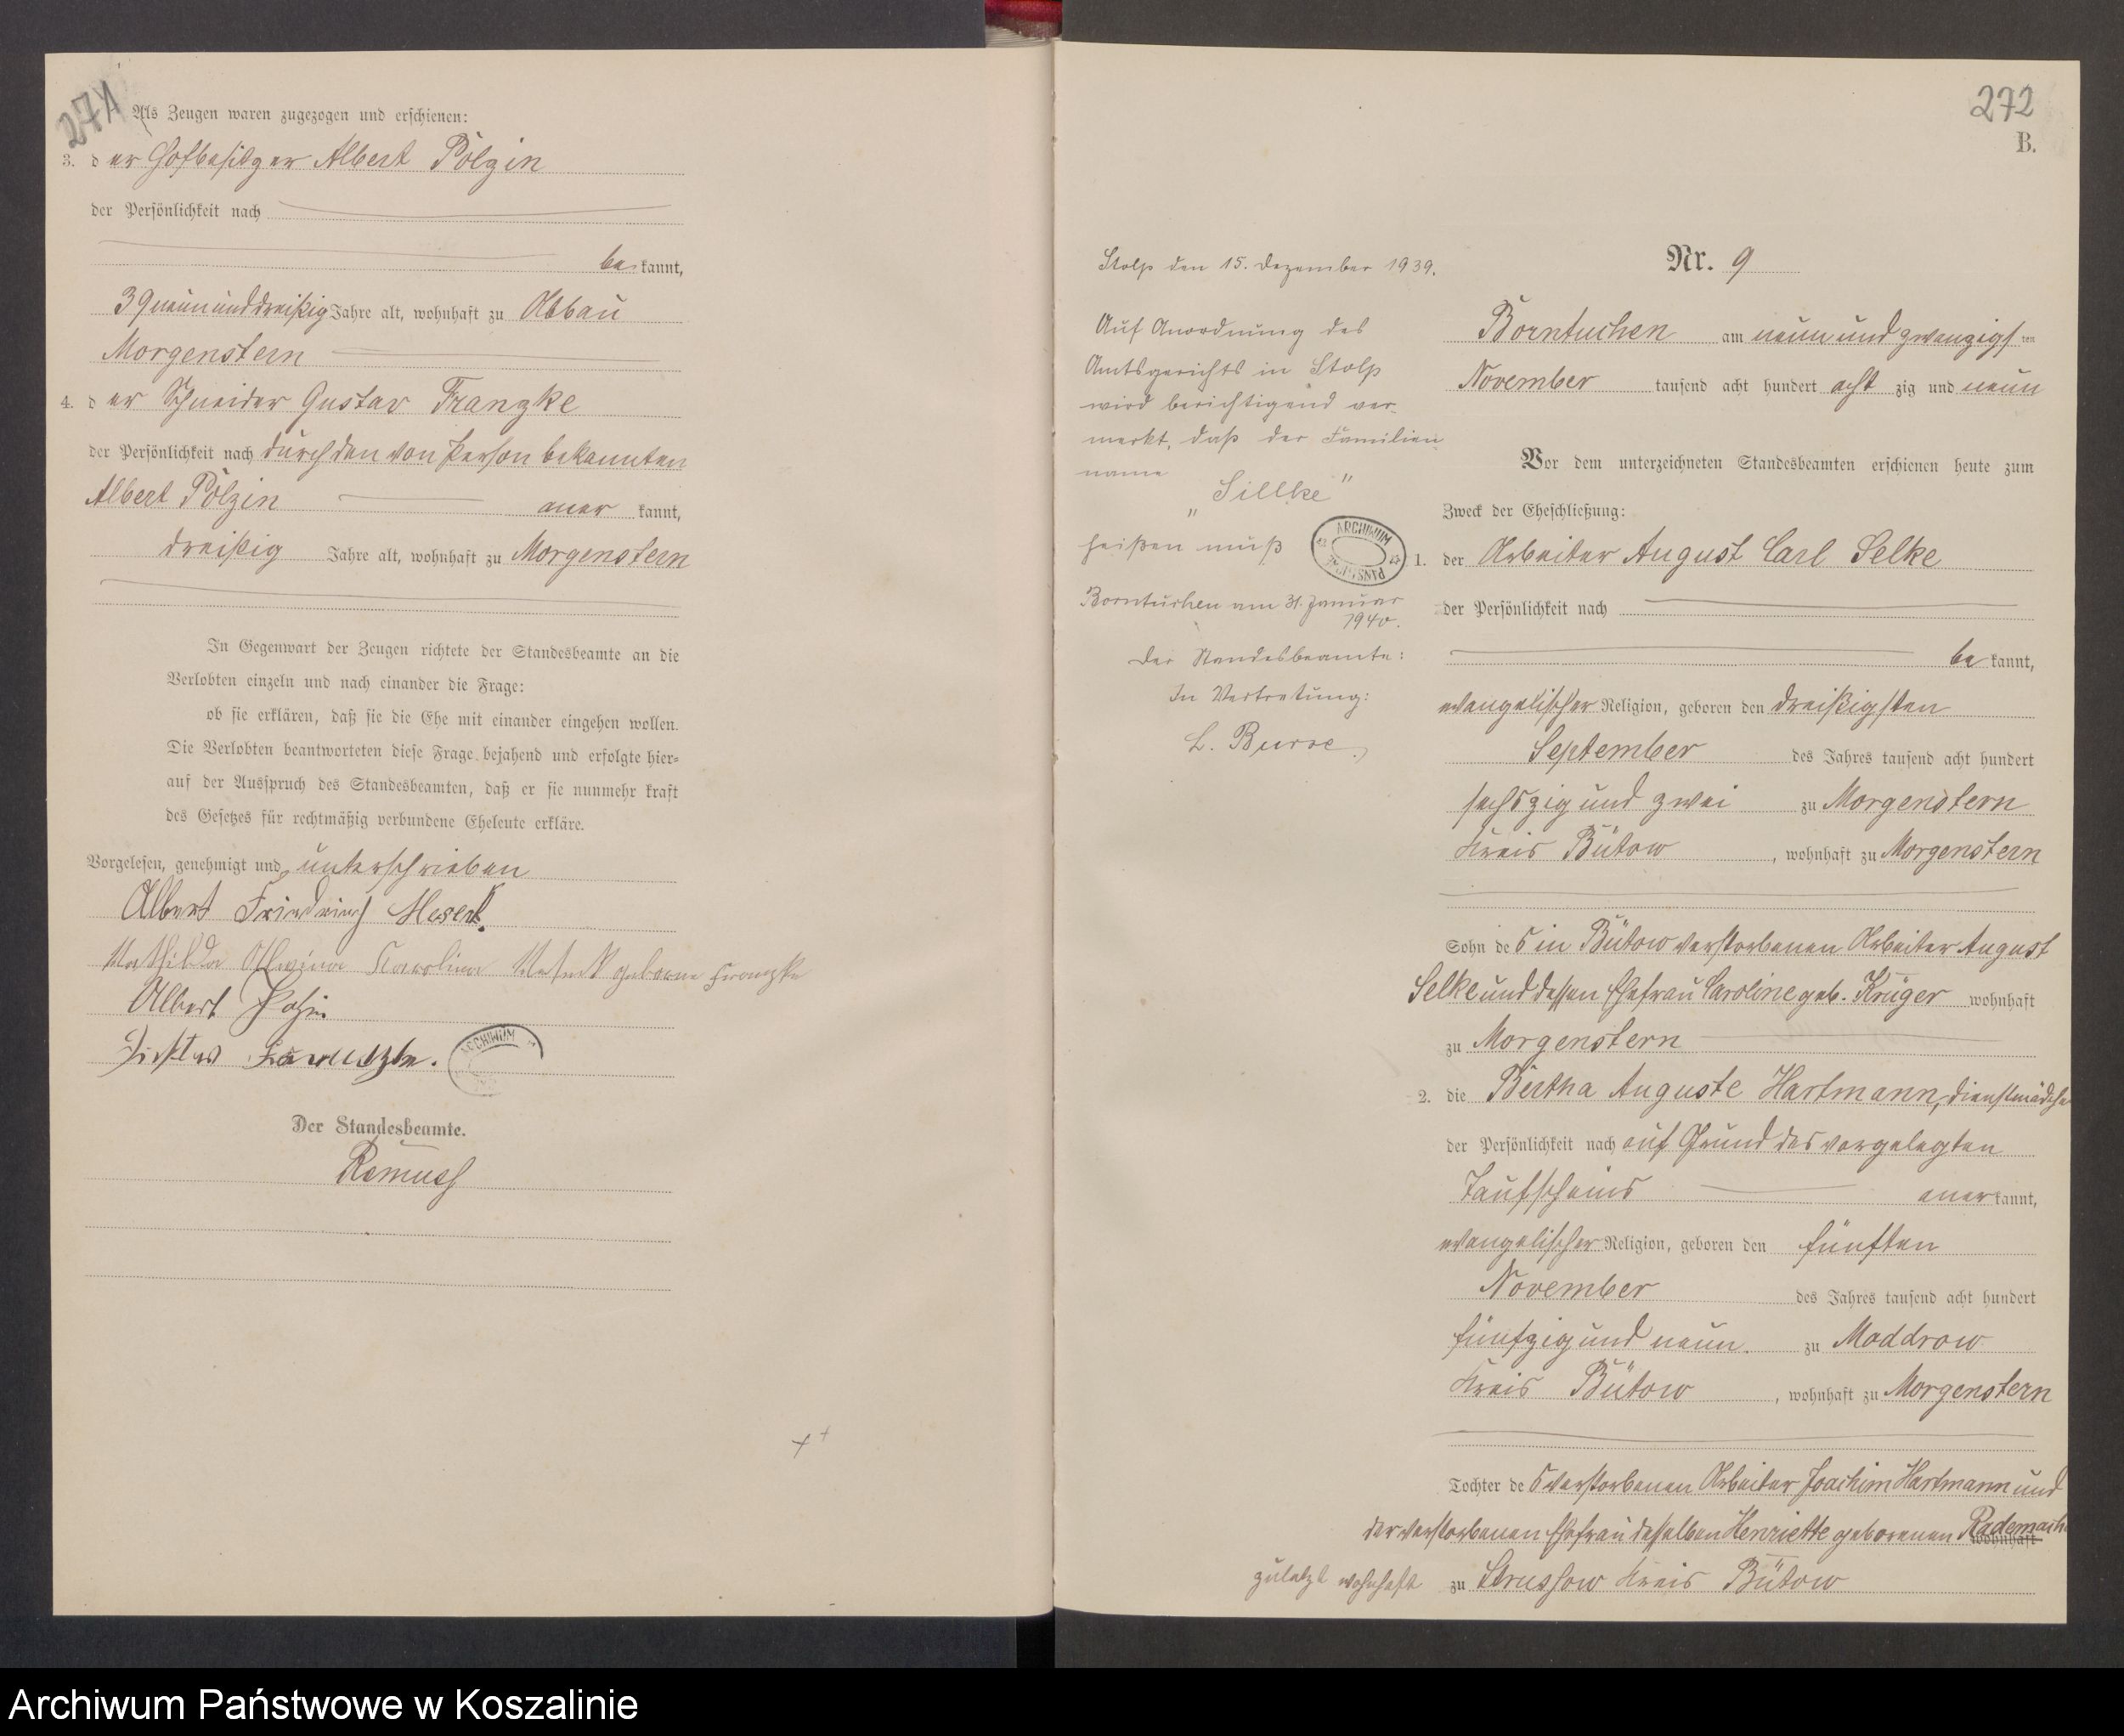 271
Als Zeugen waren zugezogen und erschienen:
3. der Hofbesitzer Albert Polzin
der Persönlichkeit nach
be kannt,
39 neununddreißig Jahre alt, wohnhaft zu Abbau
Morgenstern
4. der Schneider Gustav Franzke
der Persönlichkeit nach durch den von Person bekannten
Albert Polzin aner kannt,
dreißig Jahre alt, wohnhaft zu Morgenstern
In Gegenwart der Zeugen richtete der Standesbeamte an die
Verlobten einzeln und nach einander die Frage:
ob sie erklären, daß sie die Ehe mit einander eingehen wollen.
Die Verlobten beantworteten diese Frage bejahend und erfolgte hier=
auf der Ausspruch des Standesbeamten, daß er sie nunmehr kraft
des Gesetzes für rechtmäßig verbundene Eheleute erkläre.
Vorgelesen, genehmigt und unterschrieben
Albert Friedrich
Karoline geborne Franzke
Albert Polzin
Gustav Franzke.
ARCHIWUM
Der Standesbeamte.
272
B.
Nr. 9
Borntuchen am neun und zwanzigsten
November tausend acht hundert acht zig und neun
Vor dem unterzeichneten Standesbeamten erschienen heute zum
Zweck der Eheschließung:
1. der Arbeiter August Carl Selke
der Persönlichkeit nach
be kannt,
evangelischer Religion, geboren den dreißigsten
September des Jahres tausend acht hundert
sechszig und zwei zu Morgenstern
Kreis Bütow, wohnhaft zu Morgenstern
Sohn des in Bütow verstorbenen Arbeiter August
Selke und dessen Ehefrau Caroline geb. Krüger wohnhaft
zu Morgenstern
2. die Bertha Auguste Hartmann, Dienstmädchen
der Persönlichkeit nach auf Grund des vorgelegten
Taufscheins aner kannt,
evangelischer Religion, geboren den fünften
November des Jahres tausend acht hundert
fünfzig und neun. zu Moddrow
Kreis Bütow, wohnhaft zu Morgenstern
Tochter des verstorbenen Arbeiter Joachim Hartmann und
der verstorbenen Ehefrau desselben Henriette geborenen Rademach
wohnhaft
zuletzt wohnhaft zu Strussow Kreis Bütow
Stolp den 15. Dezember 1939.
Auf Anordnung des
Amtsgerichts in Stolp
wird berichtigend ver-
merkt, daß der Familien-
name
"Sillke"
heißen muß
ARCHIWUM
Borntuchen am 31. Januar
1940.
Der Standesbeamte:
In Vertretung:
Archiwum Państwowe w Koszalinie